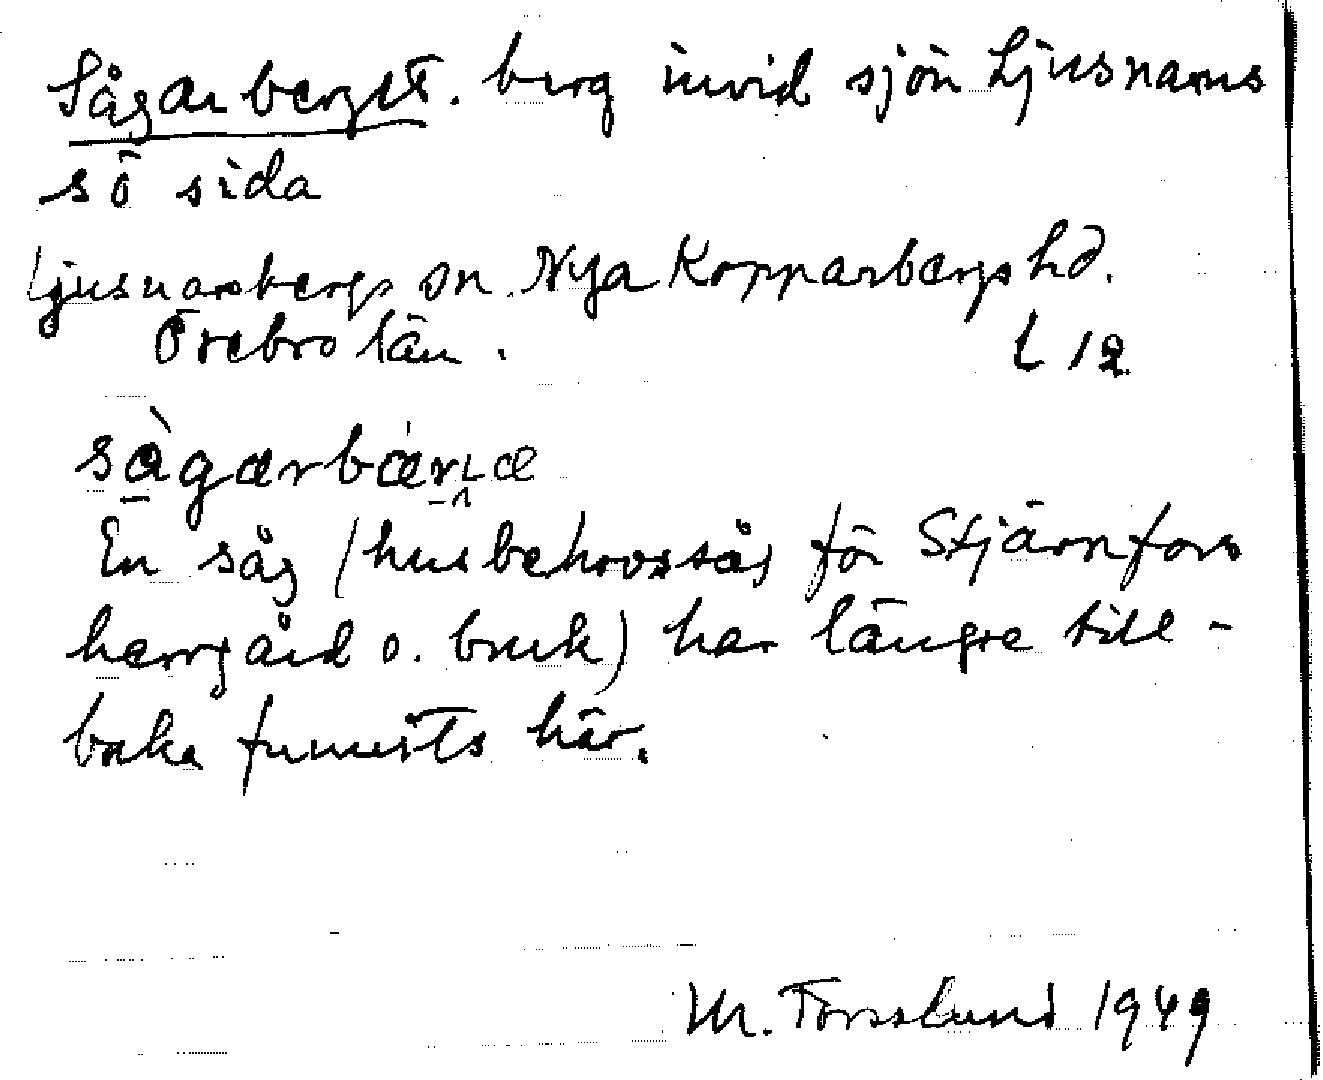 Sågarberget. berg invid sjön Ljusnarns
sö sida
Ljusnarsbergs sn. Nya Kopparbergs hd.
Örebro län. L 12
sàgarbæ̀rıæ
En såg (husbehovssåg för Stjärnfors
herrgård o. bruk) har längre till-
baka funnits här.
M. Forsslund 1949